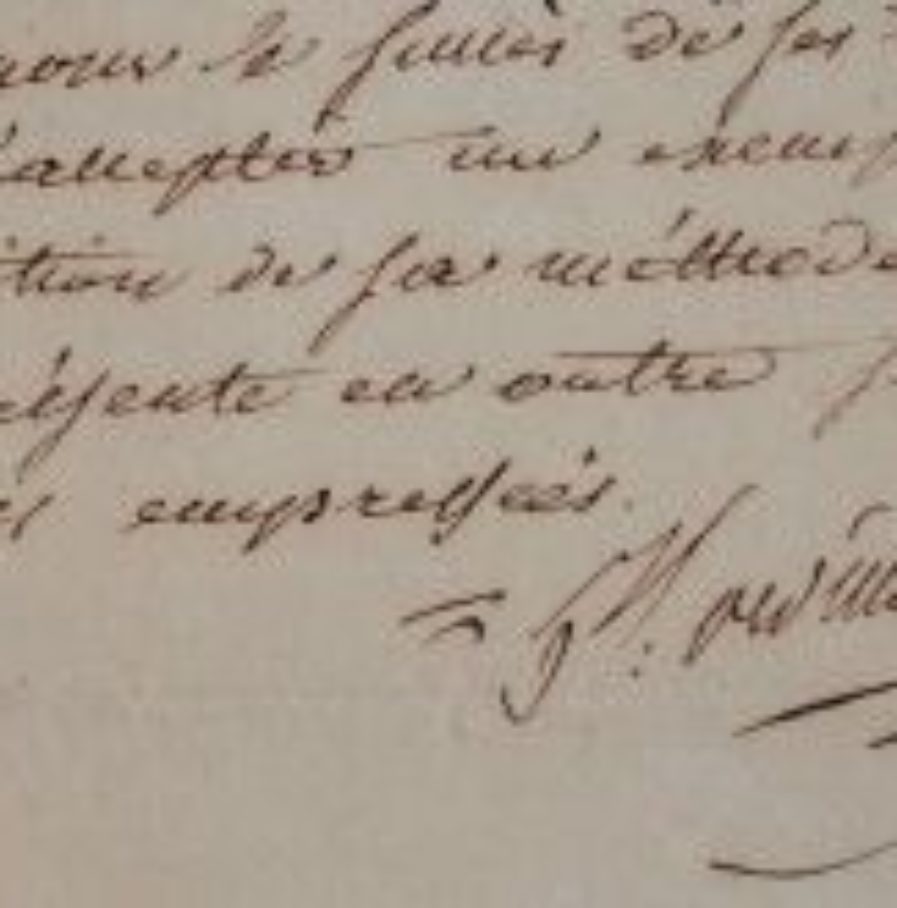 pour le succès de ses
'accepter un exemp
ition de sa méthode
résente en outre
es empressées.